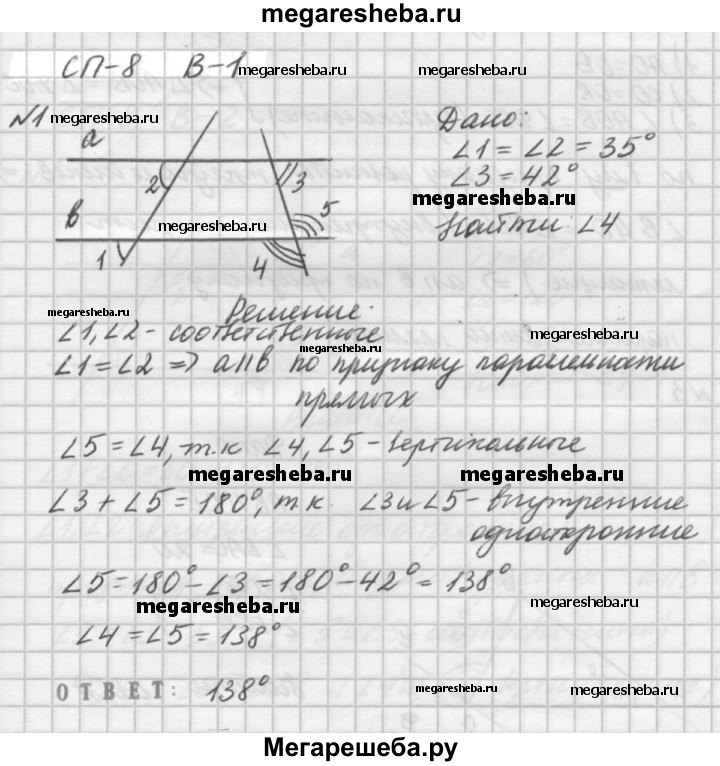 megaresheba.ru
СП-8 В-1
megaresheba.ru
megaresheba.ru
№1
megaresheba.ru
a
2
3
5
в
megaresheba.ru
1
4
Дано:
∠1 = ∠2 = 35°
∠3 = 42°
megaresheba.ru
Найти ∠4
megaresheba.ru
Решение:
∠1, ∠2 - соответственные
megaresheba.ru
megaresheba.ru
∠1 = ∠2 => a||в по признаку параллемности
прямых
∠5 = ∠4, т.к ∠4, ∠5 - вертикальные
megaresheba.ru
megaresheba.ru
∠3 + ∠5 = 180°, т.к ∠3 и ∠5 - внутренние
односторонние
∠5 = 180° - ∠3 = 180° - 42° = 138°
megaresheba.ru
megaresheba.ru
∠4 = ∠5 = 138°
ОТВЕТ: 138°
megaresheba.ru
megaresheba.ru
Мегарешеба.ру